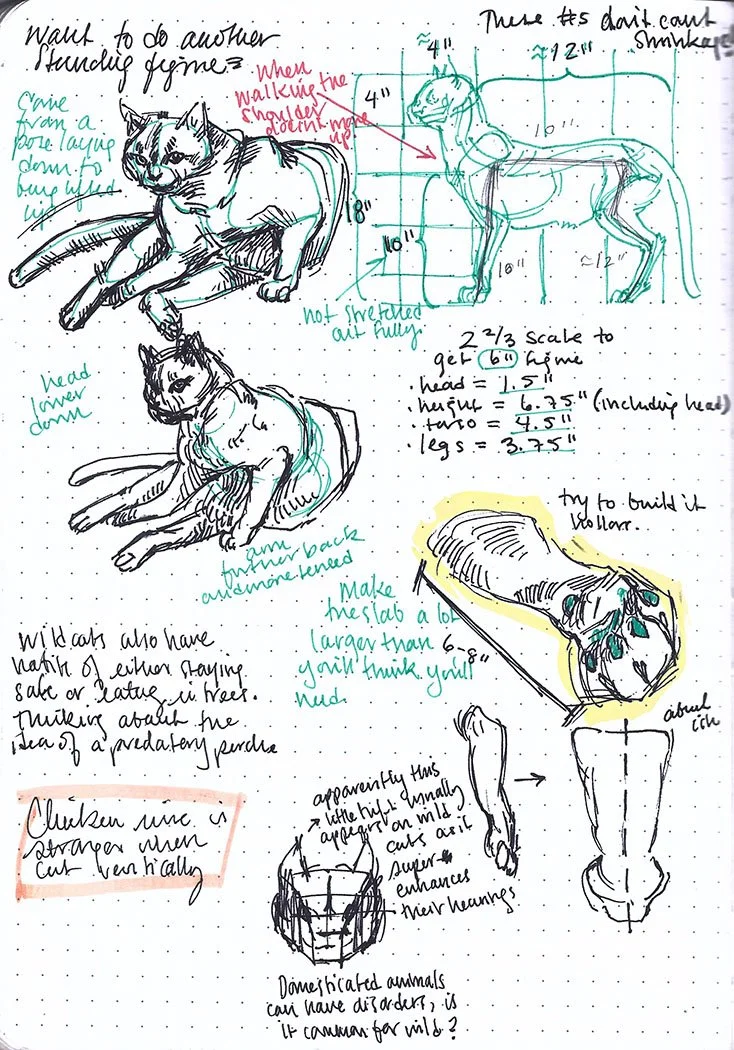 Want to do another
standing figure
These #s don't count
Shrinkage
Came
from a
pose laying
down to
being lifted
up
When
walking the
shoulder
doesn't move
up
≈4"
≈12"
4"
10"
18"
10"
10"
≈12"
not stretched
out fully
2 2/3 scale to
get 6" figure
· head = 1.5"
· height = 6.75" (including head)
· torso = 4.5"
· legs = 3.75"
head
lower
down
arm
further back
and more tensed
try to build it
hollow.
Make
the slab a lot
larger than
you'll think you'll
need.
6-8"
Wildcats also have
habit of either staying
safe or eating in trees.
Thinking about the
idea of a predatory perch
Chicken wire is
stronger when
cut vertically
apparently this
little tuft usually
appears on wild
cats as it
super
enhances
their hearing
ish
Domesticated animals
can have disorders, is
it common for wild?